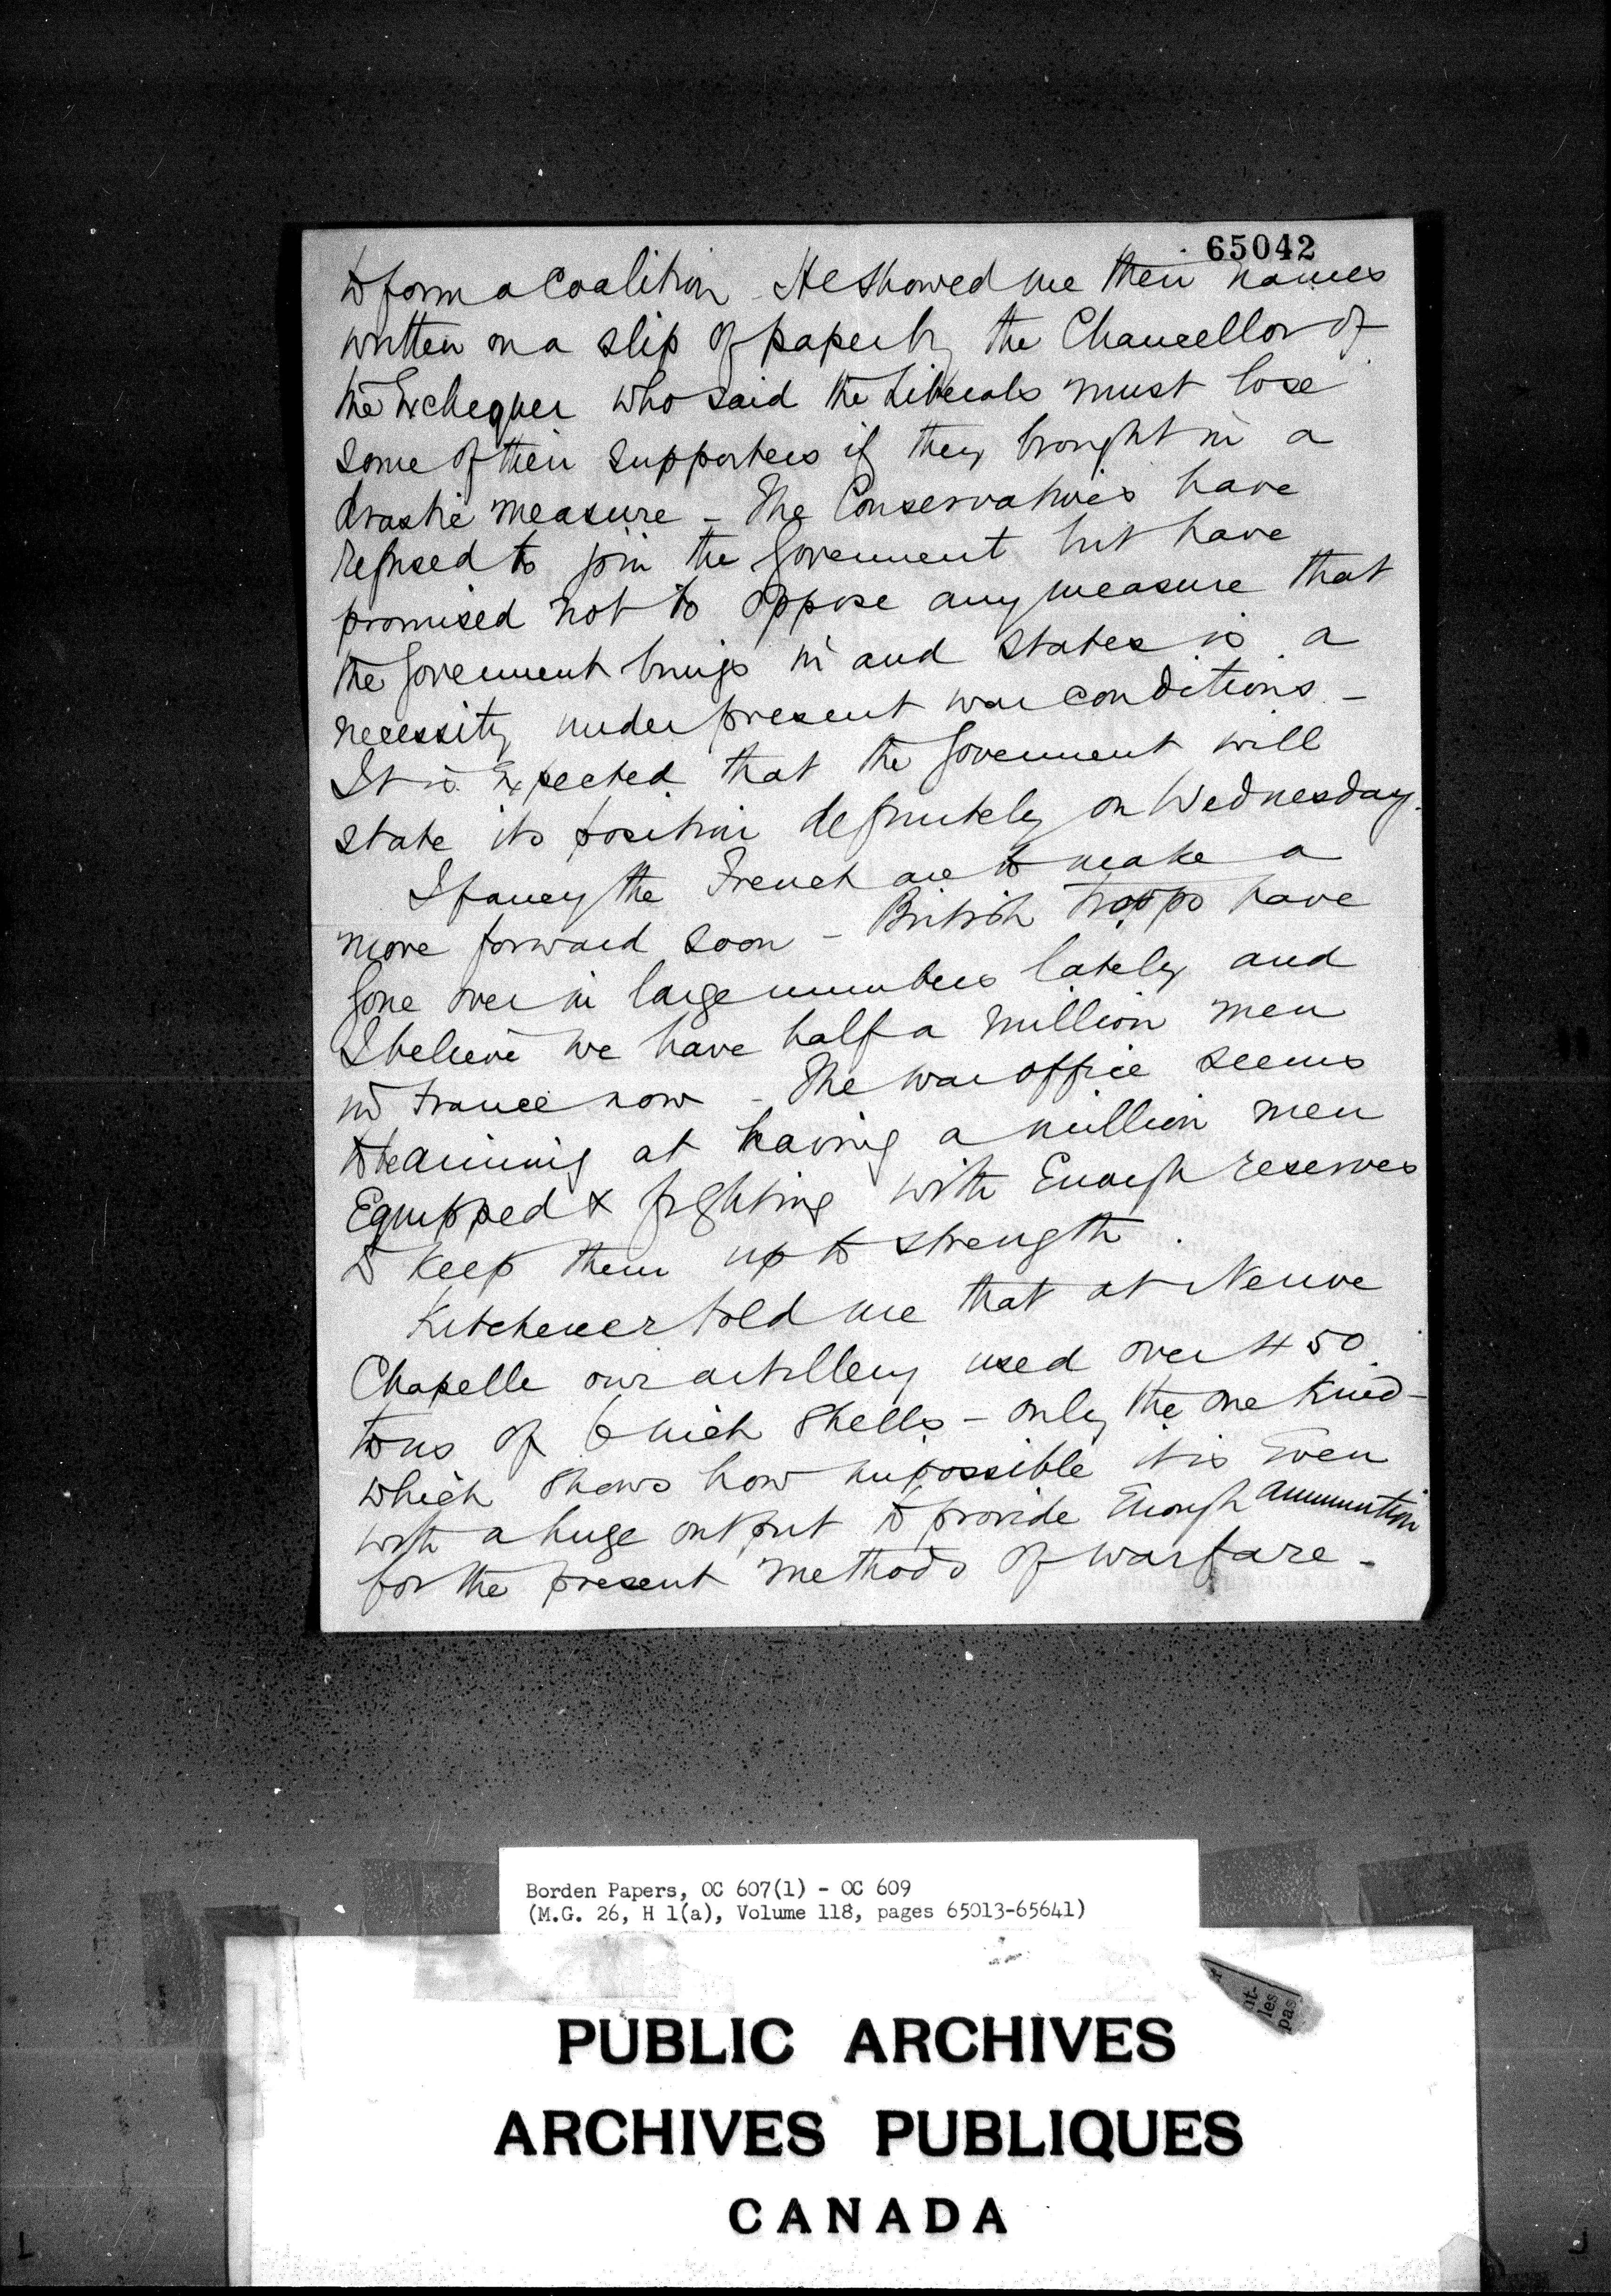 65042
to form a Coalition - He showed me their names
written on a slip of paper by the Chancellor of
the Exchequer who said the Liberals must lose
some of their supporters if they brought in a
drastic measure - The Conservatives have
refused to join the Government but have
promised not to oppose any measure that
the Government brings in and states is a
necessity under present war conditions -
It is expected that the Government will
state its position definitely on Wednesday.
I fancy the French are to make a
move forward soon - British troops have
gone over in large numbers lately and
I believe we have half a million men
in France now - The War Office seems
to be aiming at having a million men
Equipped & fighting with Enough reserves
to keep them up to strength.
Kitchener told me that at Neuve
Chapelle our artillery used over 450
tons of 6 inch shells - only the one kind -
which shows how impossible it is Even
with a huge output to provide Enough ammunition
for the present methods of warfare -
Borden Papers, OC 607(1) - OC 609
(M.G. 26, H 1(a), Volume 118, pages 65013-65641)
nt-
les
pas
PUBLIC ARCHIVES
ARCHIVES PUBLIQUES
CANADA